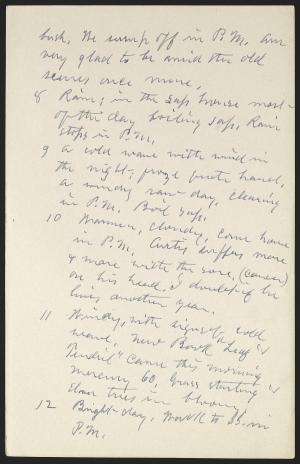 bush. The sump off in P.M. Am
very glad to be amid the old
scenes once more.
8 Rain; in the sap house most
of the day boiling sap. Rain
stops in P.M.
9 a cold wave with wind in
the night; froze quite hard,
a windy raw day, clearing
in P.M. Boil sap.
10 Warmer, cloudy, come home
in P.M. Curtis suffers more
& more with the sore, (cancer)
on his head. I doubt if he
lives another year.
11 Windy, with signs of cold
wave. New Book "Leaf &
Tendril" came this morning
mercury 60, Grass starting
elm trees in bloom.
12 Bright day. Walk to in
P.M.